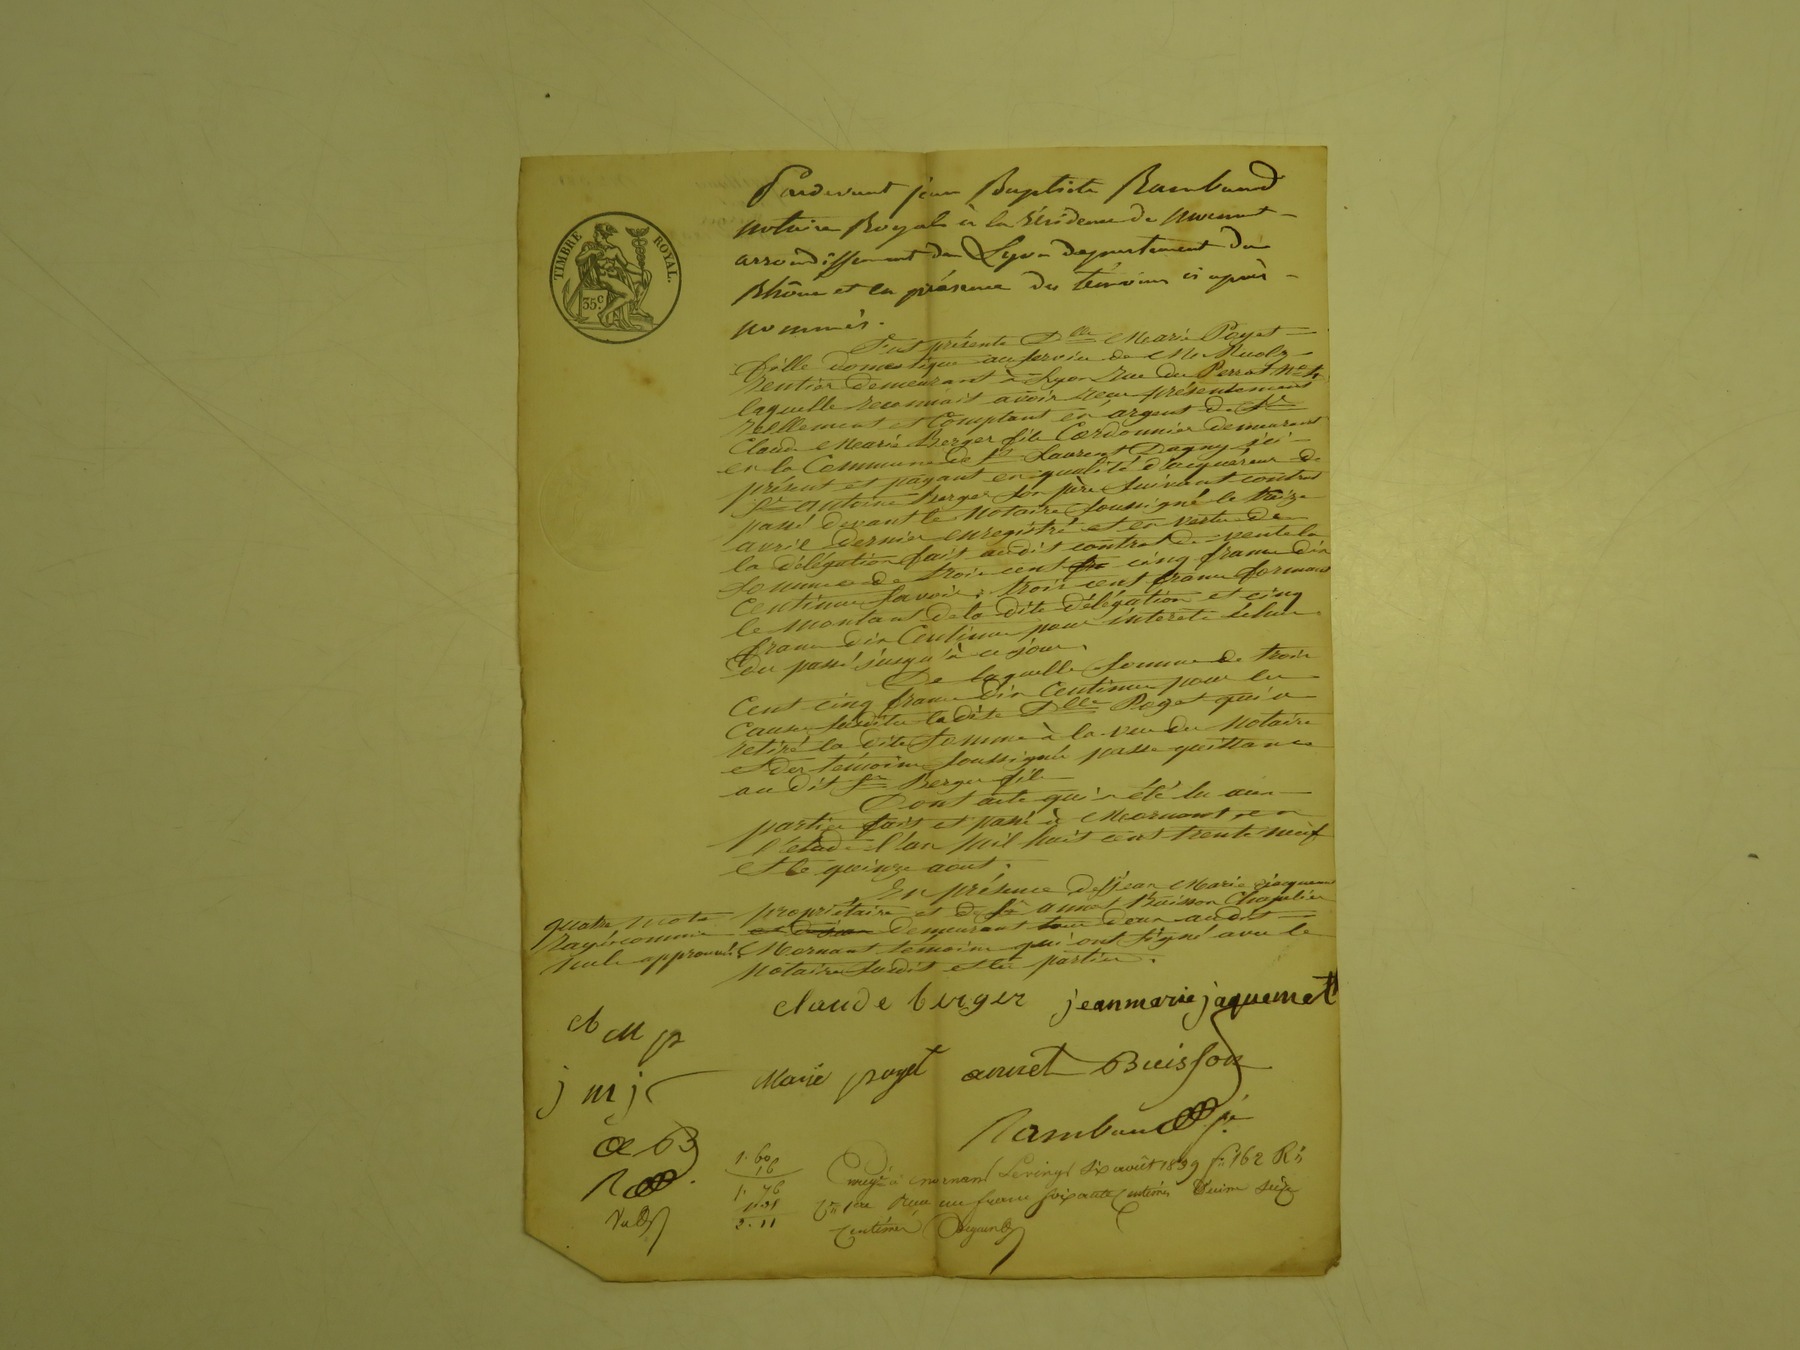 TIMBRE ROYAL.
35c.
Pardevant jean Baptiste Rambaud
notaire Royal à la résidence de Mornant
arrondissement de Lyon departement du
Rhône et en présence des témoins ci après
nommés.
Fut présente Dlle Marie Poyet
fille domestique au service de Mr
rentier demeurant à Lyon rue du Perrat No
laquelle reconnait avoir reçu présentement
réellement et Comptant en argent de Sr
Claude Marie Berger fils Cordonnier demeurant
en la Commune de St Laurent Dagny ici
présent et payant en qualité d'acquéreur de
Sr antoine berger son père suivant contrat
passé devant le Notaire soussigné le treize
avril dernier enregistré et en vertu de
la délégation fait audit contrat de vente la
somme de trois cent cinq francs dix
Centimes savoir: trois cent francs formant
le montant de la dite délégation et cinq
francs dix Centimes pour intérets échus
du passé jusqu'à ce jour.
De laquelle somme de trois
Cent cinq francs dix Centimes pour les
Causes susdites la dite Dlle Poyet qui a
retiré la dite somme à la vue du Notaire
et des témoins soussignés passe quittance
au dit Sr Berger fils
Dont acte qui a été lu aux
parties fait et passé à Mornant en
l'étude l'an mil huit cent trente neuf
et le quinze aout.
En présence de Sr jean Marie jacquemet
propriétaire et de Sr annet Buisson Chapelier
demeurant tous deux audit
Mornant témoins qui ont signé avec le
Notaire susdit et les parties.
quatre mots
rayés comme
nuls approuvés
claude berger jeanmarie jaquemet
cb M p
Marie poyet annet Buisson
j m j
Rambaud
a B
R
1. 60
16
1. 76
35
2. 11
Enregé à mornant le vingt six août 1839 fo 162 Ro
Cse 1ere Reçu un franc soixante Centimes Décime seize
Centimes